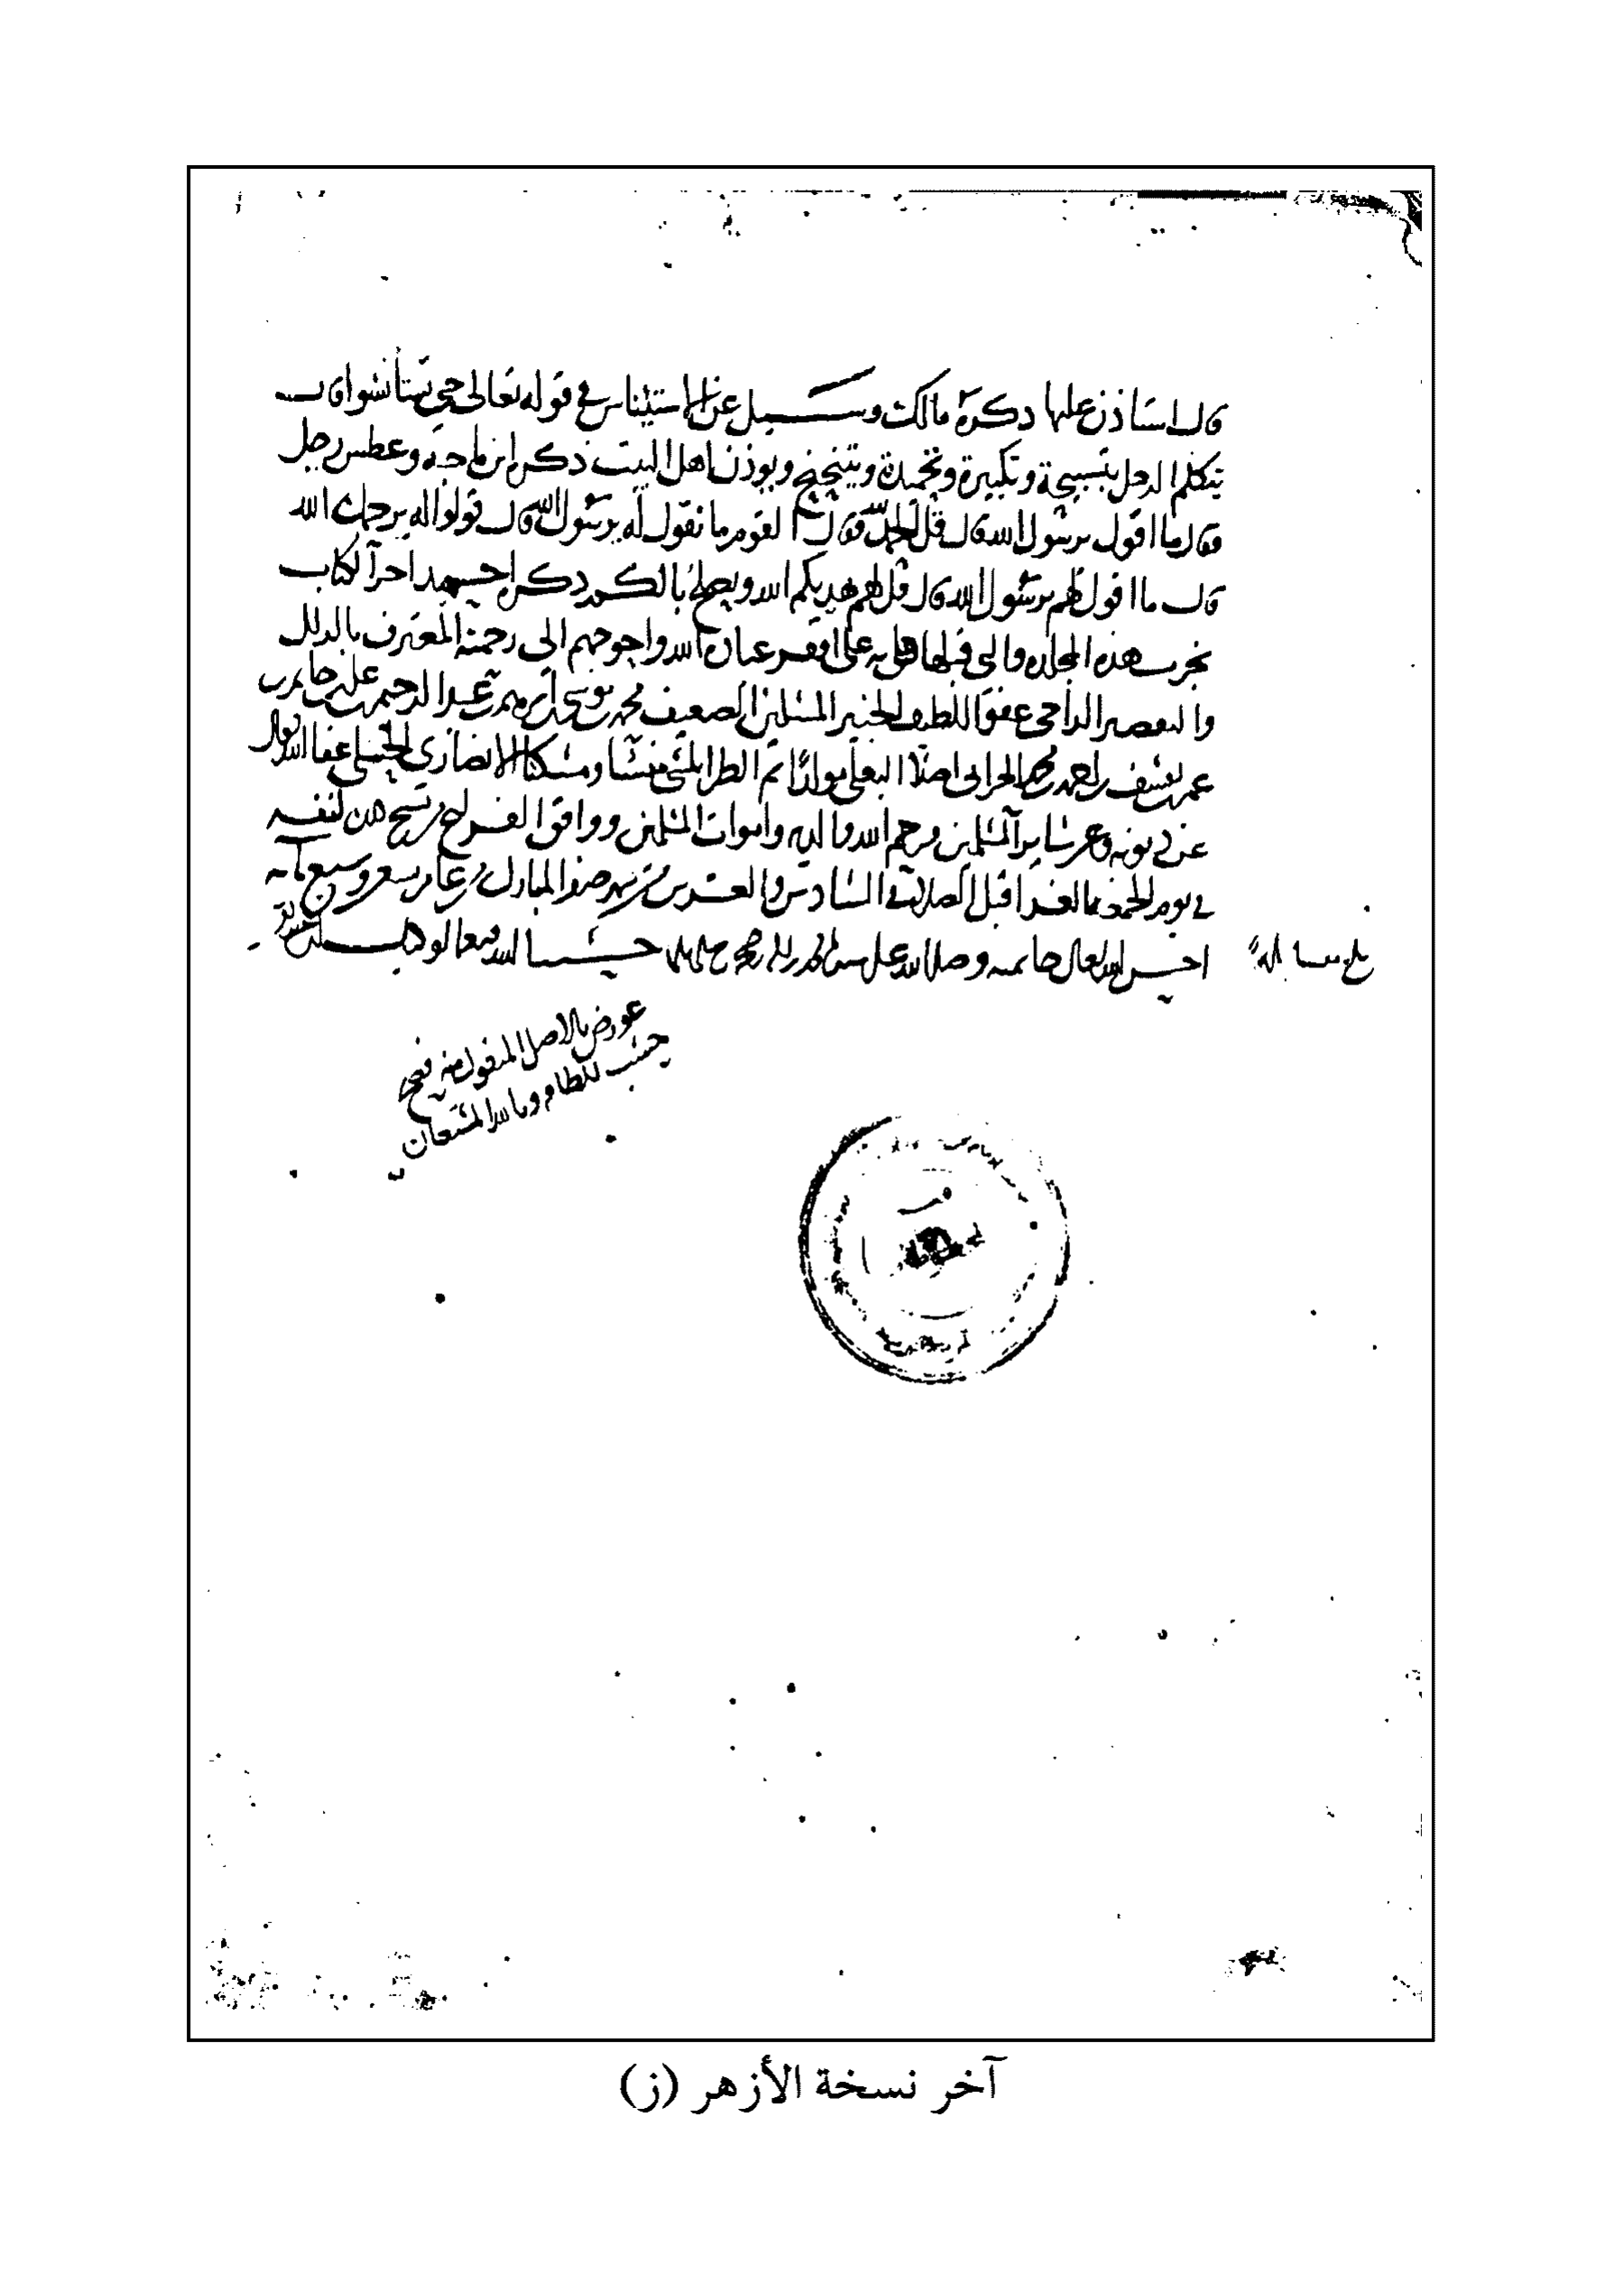 قال استاذن عليها ذكره مالك وسئل عن الاستئناس في قوله تعالى حتى تستأنسوا قال
يتكلم الرجل بتسبيحة وتكبيرة وتحميدة ويتنحنح ويوذن اهل البيت ذكره ابن ماجه وعطس رجل
فقال ما اقول يرسول الله قال قل الحمد لله فقال القوم ما نقول له يرسول الله قال قولوا له يرحمك الله
قال ما اقول لهم يرسول الله قال قل لهم يهديكم الله ويصلح بالكم ذكره احمد اخر الكتاب
نجزت هذه المجلدة والتي قبلها على افقر عباد الله واحوجهم الى رحمته المعترف بالزلل
والتقصير الراجي عفو اللطيف الخبير المسلمين الضعيف محمد بن موسى بن ابرهيم بن عبد الرحمن بن علي بن حاتم بن
عمر بن يوسف بن احمد بن محمد الحراني اصلا البعلي مولدا ثم الطرابلسي منشأ ومسكنا الانصاري الحنبلي عفا الله تعالى
عن ذنوبه وعن سائر المسلمين ورحم الله والديه واموات المسلمين ووافق الفراغ من نسخ هذه لنفسه
في يوم الجمعة قبل الصلاة في السادس والعشرين من شهر صفر المبارك من عام تسع وسبعمائة
احسن الله تعالى خاتمته وصلى الله على سيدنا محمد حسبنا الله ونعم الوكيل
بلغ مقابلة
عورض بالاصل المنقول منه فصح
حسب الطاقة وبالله المستعان
آخر نسخة الأزهر (ز)